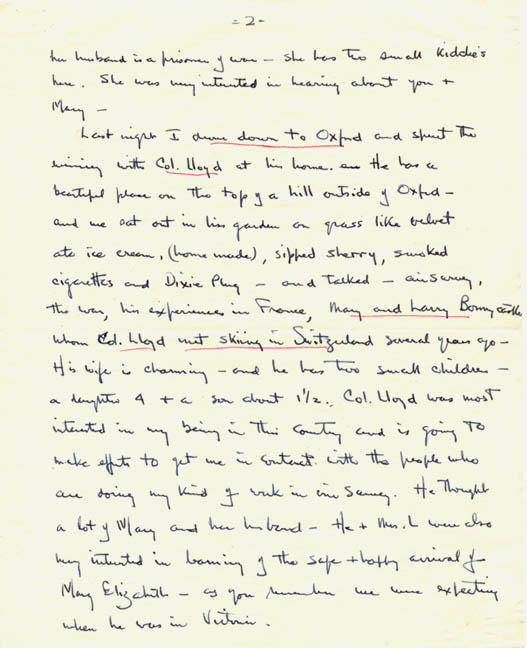 = 2 -
her husband is a prisoner of war - she has two small kiddies
here. She was very interested in hearing about you +
Mary -
Last night I drove down to Oxford and spent the
evening with Col. Lloyd at his home. He has a
beautiful place on the top of a hill outside of Oxford -
and we sat out in his garden on grass like velvet
ate ice cream, (home made), sipped sherry, smoked
cigarettes and Dixie Plug - and talked - air survey,
the war, his experiences in France, Mary and Larry Bonnycastle
whom Col. Lloyd met skiing in Switzerland several years ago -
His wife is charming - and he has two small children -
a daughter 4 + a son about 1½. Col. Lloyd was most
interested in my being in this country and is going to
make efforts to get me in contact with the people who
are doing my kind of work in air survey. He thought
a lot of Mary and her husband - He + Mrs. L were also
very interested in learning of the safe + happy arrival of
Mary Elizabeth - as you remember we were expecting
when he was in Victoria.